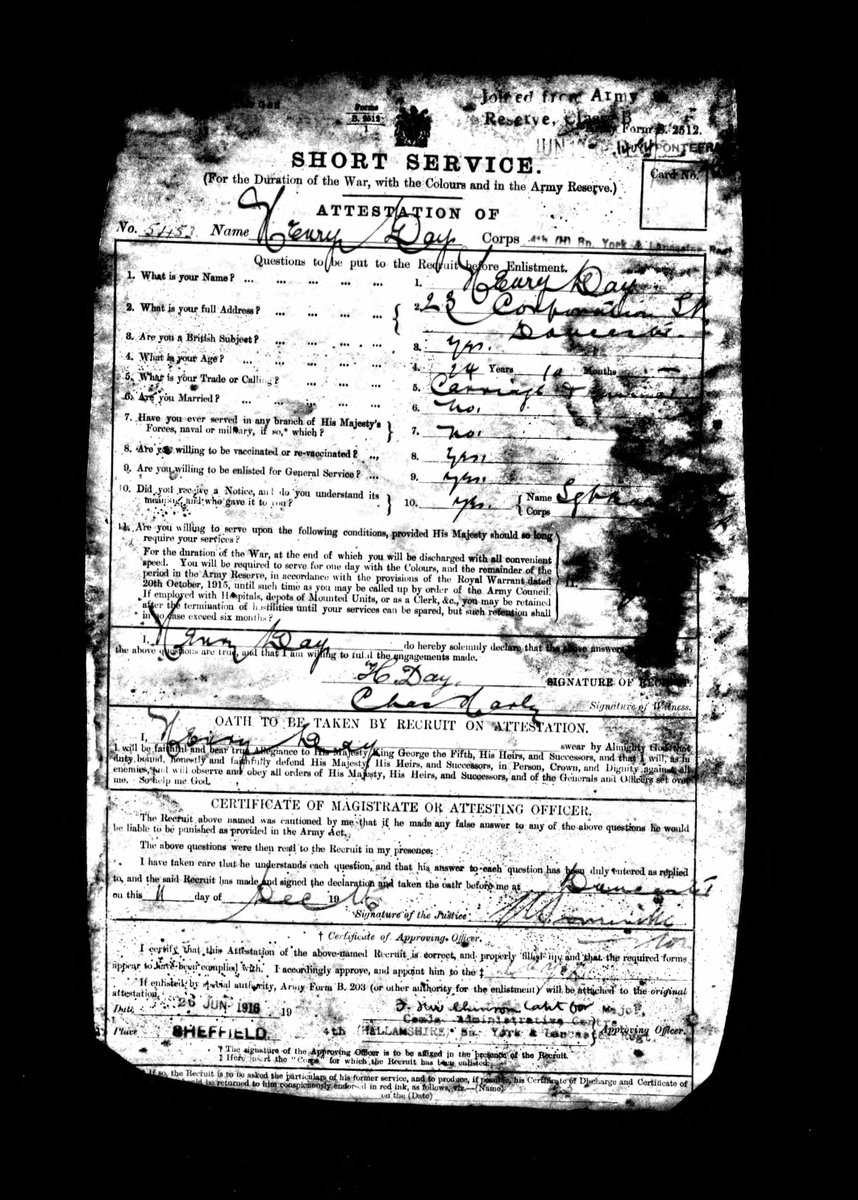 Joined from Army
Forms
B. 2512
1
Reserve, Class B
Army Form B. 2512.
JUN PONTEFRA
SHORT SERVICE.
(For the Duration of the War, with the Colours and in the Army Reserve.)
Card No.
ATTESTATION OF
No. Name Henry Day Corps 4th (H) Bn. York & Lancaster Regt
Questions to be put to the Recruit before Enlistment.
1. What is your Name? ... ... ... ... 1. Henry Day
2. What is your full Address? ... ... ... 2. 23 Corporation St
Doncaster
3. Are you a British Subject? ... ... ... 3. yes.
4. What is your Age? ... ... ... ... 4. 24 Years 10 Months
5. What is your Trade or Calling? ... ... 5. Carriage
6. Are you Married? ... ... ... ... 6. no.
7. Have you ever served in any branch of His Majesty's
Forces, naval or military, if so,* which? 7. no.
8. Are you willing to be vaccinated or re-vaccinated? ... 8. yes.
9. Are you willing to be enlisted for General Service? ... 9. yes.
10. Did you receive a Notice, and do you understand its
meaning, and who gave it to you? 10. yes. Name Sgt
Corps
11. Are you willing to serve upon the following conditions, provided His Majesty should so long
require your services?
For the duration of the War, at the end of which you will be discharged with all convenient
speed. You will be required to serve for one day with the Colours, and the remainder of the
period in the Army Reserve, in accordance with the provisions of the Royal Warrant dated
20th October, 1915, until such time as you may be called up by order of the Army Council. 11.
If employed with Hospitals, depots of Mounted Units, or as a Clerk, &c., you may be retained
after the termination of hostilities until your services can be spared, but such retention shall
in no case exceed six months?
I, Henry Day do hereby solemnly declare that the above answers
the above questions are true, and that I am willing to fulfil the engagements made.
H Day. SIGNATURE OF RECRUIT
Chas Signature of Witness.
OATH TO BE TAKEN BY RECRUIT ON ATTESTATION.
I, Henry Day swear by Almighty God, that
I will be faithful and bear true Allegiance to His Majesty King George the Fifth, His Heirs, and Successors, and that I will, as in
duty bound, honestly and faithfully defend His Majesty, His Heirs, and Successors, in Person, Crown, and Dignity against all
enemies, and will observe and obey all orders of His Majesty, His Heirs, and Successors, and of the Generals and Officers set over
me. So help me God.
CERTIFICATE OF MAGISTRATE OR ATTESTING OFFICER.
The Recruit above named was cautioned by me that if he made any false answer to any of the above questions he would
be liable to be punished as provided in the Army Act.
The above questions were then read to the Recruit in my presence.
I have taken care that he understands each question, and that his answer to each question has been duly entered as replied
to, and the said Recruit has made and signed the declaration and taken the oath before me at Doncaster
on this 11 day of Dec 19
Signature of the Justice
† Certificate of Approving Officer.
I certify that this Attestation of the above-named Recruit is correct, and properly filled up, and that the required forms
appear to have been complied with. I accordingly approve, and appoint him to the ‡
If enlisted by special authority, Army Form B. 203 (or other authority for the enlistment) will be attached to the original
attestation.
Date 26 JUN 1916 19 Capt for Major.
Comdg. Administrative Centre
Place SHEFFIELD 4th (HALLAMSHIRE) Bn. York & Lancaster Regt. Approving Officer.
† The signature of the Approving Officer is to be affixed in the presence of the Recruit.
‡ Here insert the "Corps" for which the Recruit has been enlisted.
If so, the Recruit is to be asked the particulars of his former service, and to produce, if possible, his Certificate of Discharge and Certificate of
should be returned to him conspicuously endorsed in red ink, as follows, viz.—(Name)
on the (Date)